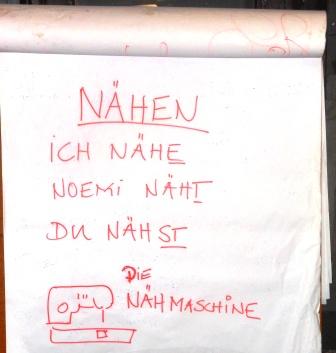 NÄHEN
ICH NÄHE
NOEMI NÄHT
DU NÄHST
DIE
NÄHMASCHINE